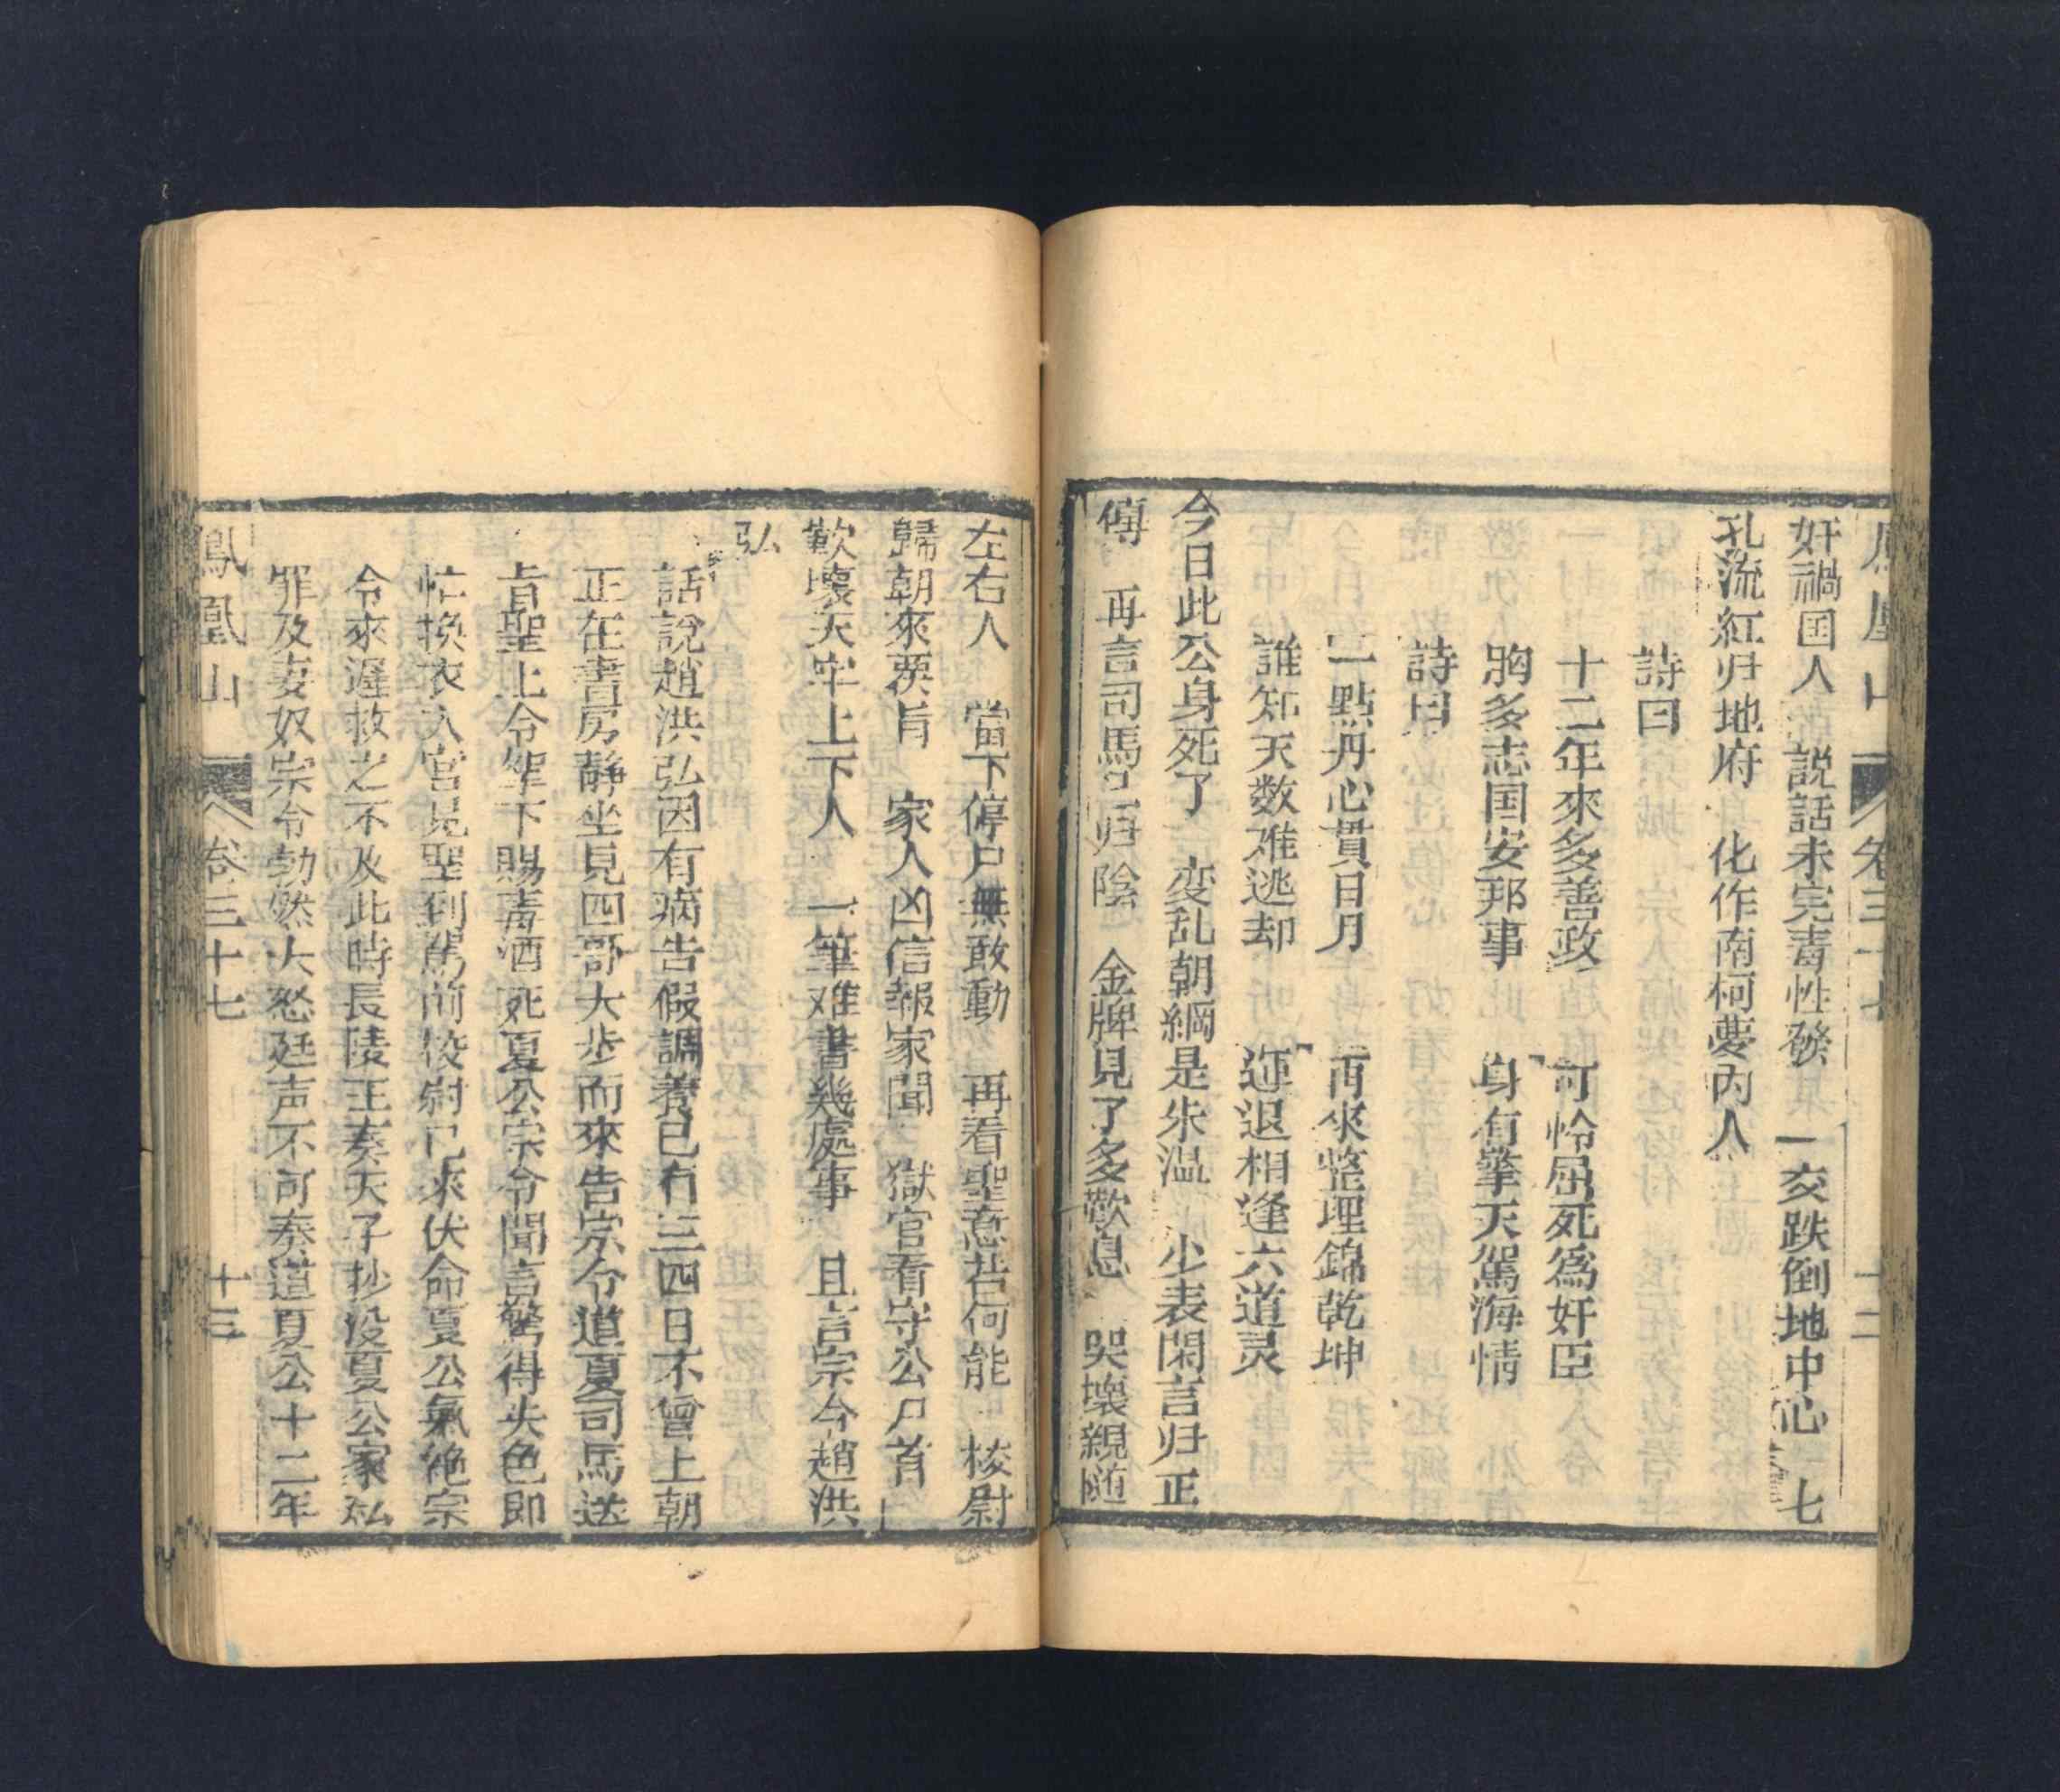 鳳凰山 卷三十七 十二
奸禍国人 説話未完毒性發 一交跌倒地中心 七
孔流紅归地府 化作南柯夢内人
詩曰
十二年來多善政 可怜屈死爲奸臣
胸多志国安邦事 身有擎天駕海情
詩曰
一點丹心貫日月 再來整理錦乾坤
誰知天数难逃却 迍退相逢六道灵
今日此公身死了 变乱朝綱是朱温 少表閑言归正
傳 再言司馬已归陰 金牌見了多歎息 哭壞親随
左右人 當下停尸無敢動 再看聖意若何能 校尉
歸朝來覆旨 家人凶信報家聞 獄官看守公尸首
歎壞天牢上下人 一筆难書幾處事 且言宗令趙洪
弘
話說趙洪弘因有病告假調養已有三四日不曾上朝
正在書房靜坐見四哥大步而來告宗令道夏司馬送
旨聖上令牢下賜毒酒死夏公宗令聞言驚得失色即
忙換衣入宫見聖到駕前校尉已來伏命夏公氣絶宗
令來遲救之不及此時長陵王奏天子抄没夏公家私
罪及妻奴宗令勃然大怒廷声不可奏道夏公十二年
鳳凰山 卷三十七 十三